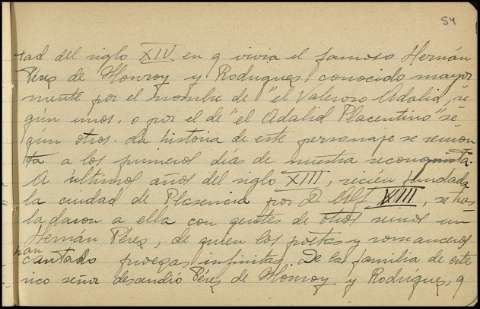 54
tad del siglo XIV en q vivia el famoso Hernán
Pérez de Monroy y Rodriguez, conocido mayor
mente por el nombre de "el Valeroso Adalid", se
gún unos. o por el de "el Adalid Placentino" se
gún otros. La historia de este personaje se remon
ta a los primeros días de nuestra reconquista.
A ultimos años del siglo XIII, recien fundada
la ciudad de Plasencia por D. Alfº VIII, se tras
ladaron a ella con gentes de otros reinos un
Hernán Pérez, de quien los poetas y romanceros
han cantado proezas infinitas. De la familia de este
rico señor desendió Pérez de Monroy y Rodriguez, q